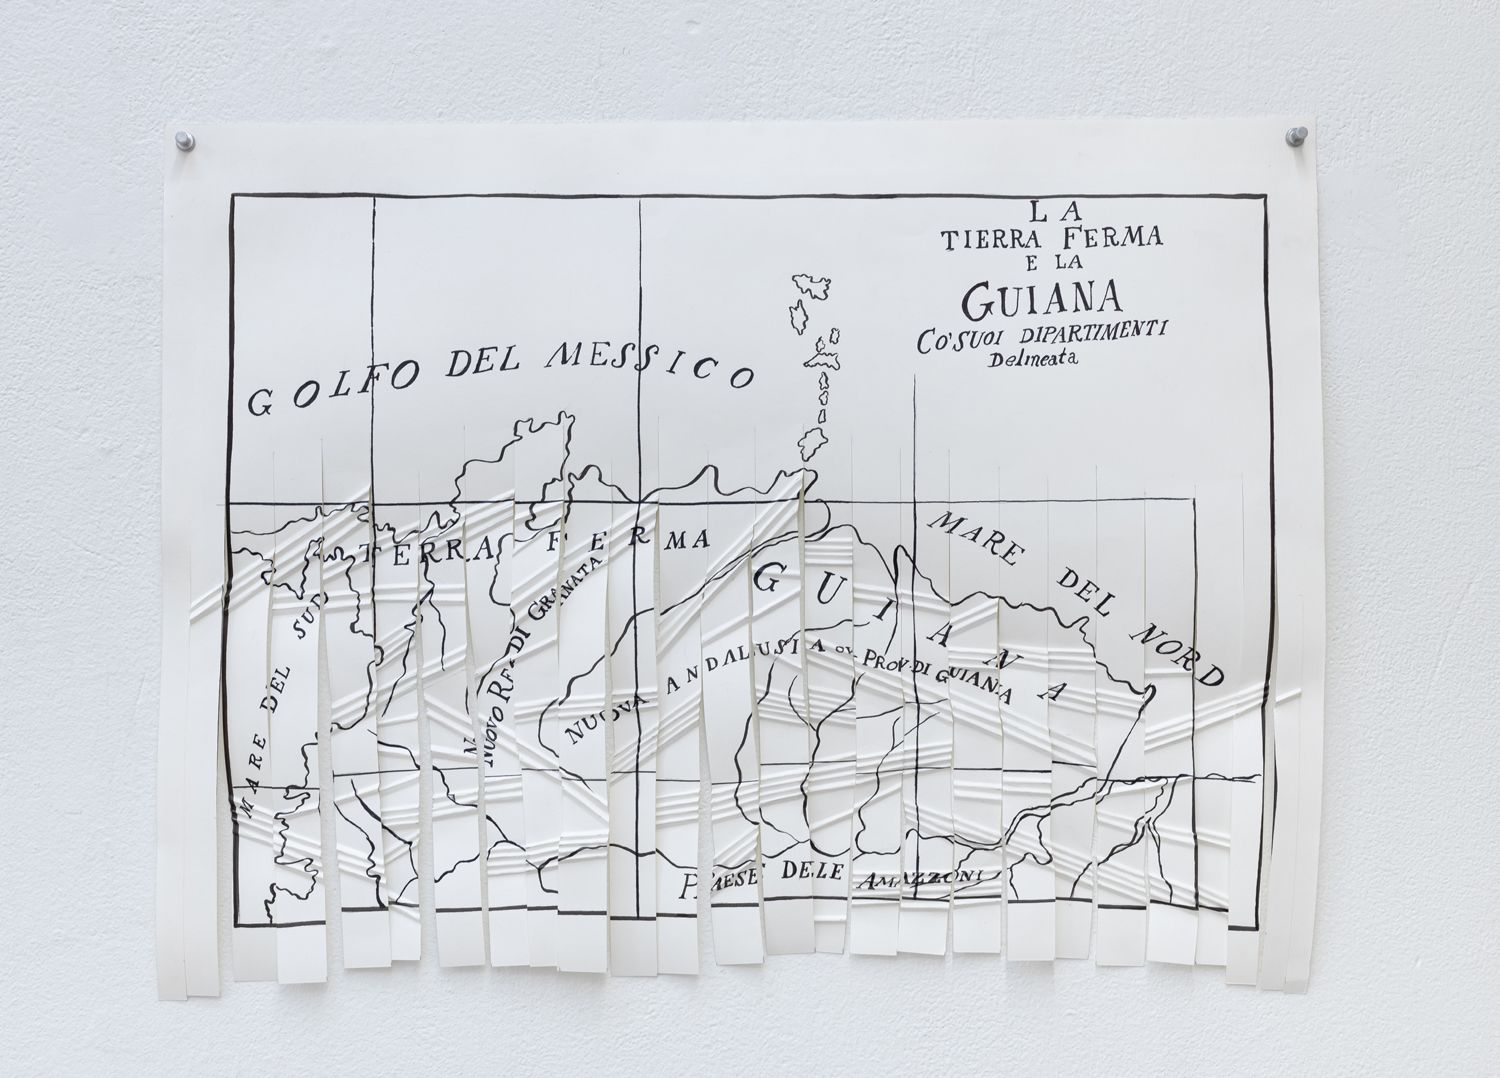 LA
TIERRA FERMA
E LA
GUIANA
CO'SUOI DIPARTIMENTI
Delineata
GOLFO DEL MESSICO
TERRA FERMA
MARE DEL NORD
GUIANA
MARE DEL SUD
NUOVO RE DI GRANATA
NUOVA ANDALUSIA OV. PROV. DI GUIANA
PAESE DELE AMAZZONI